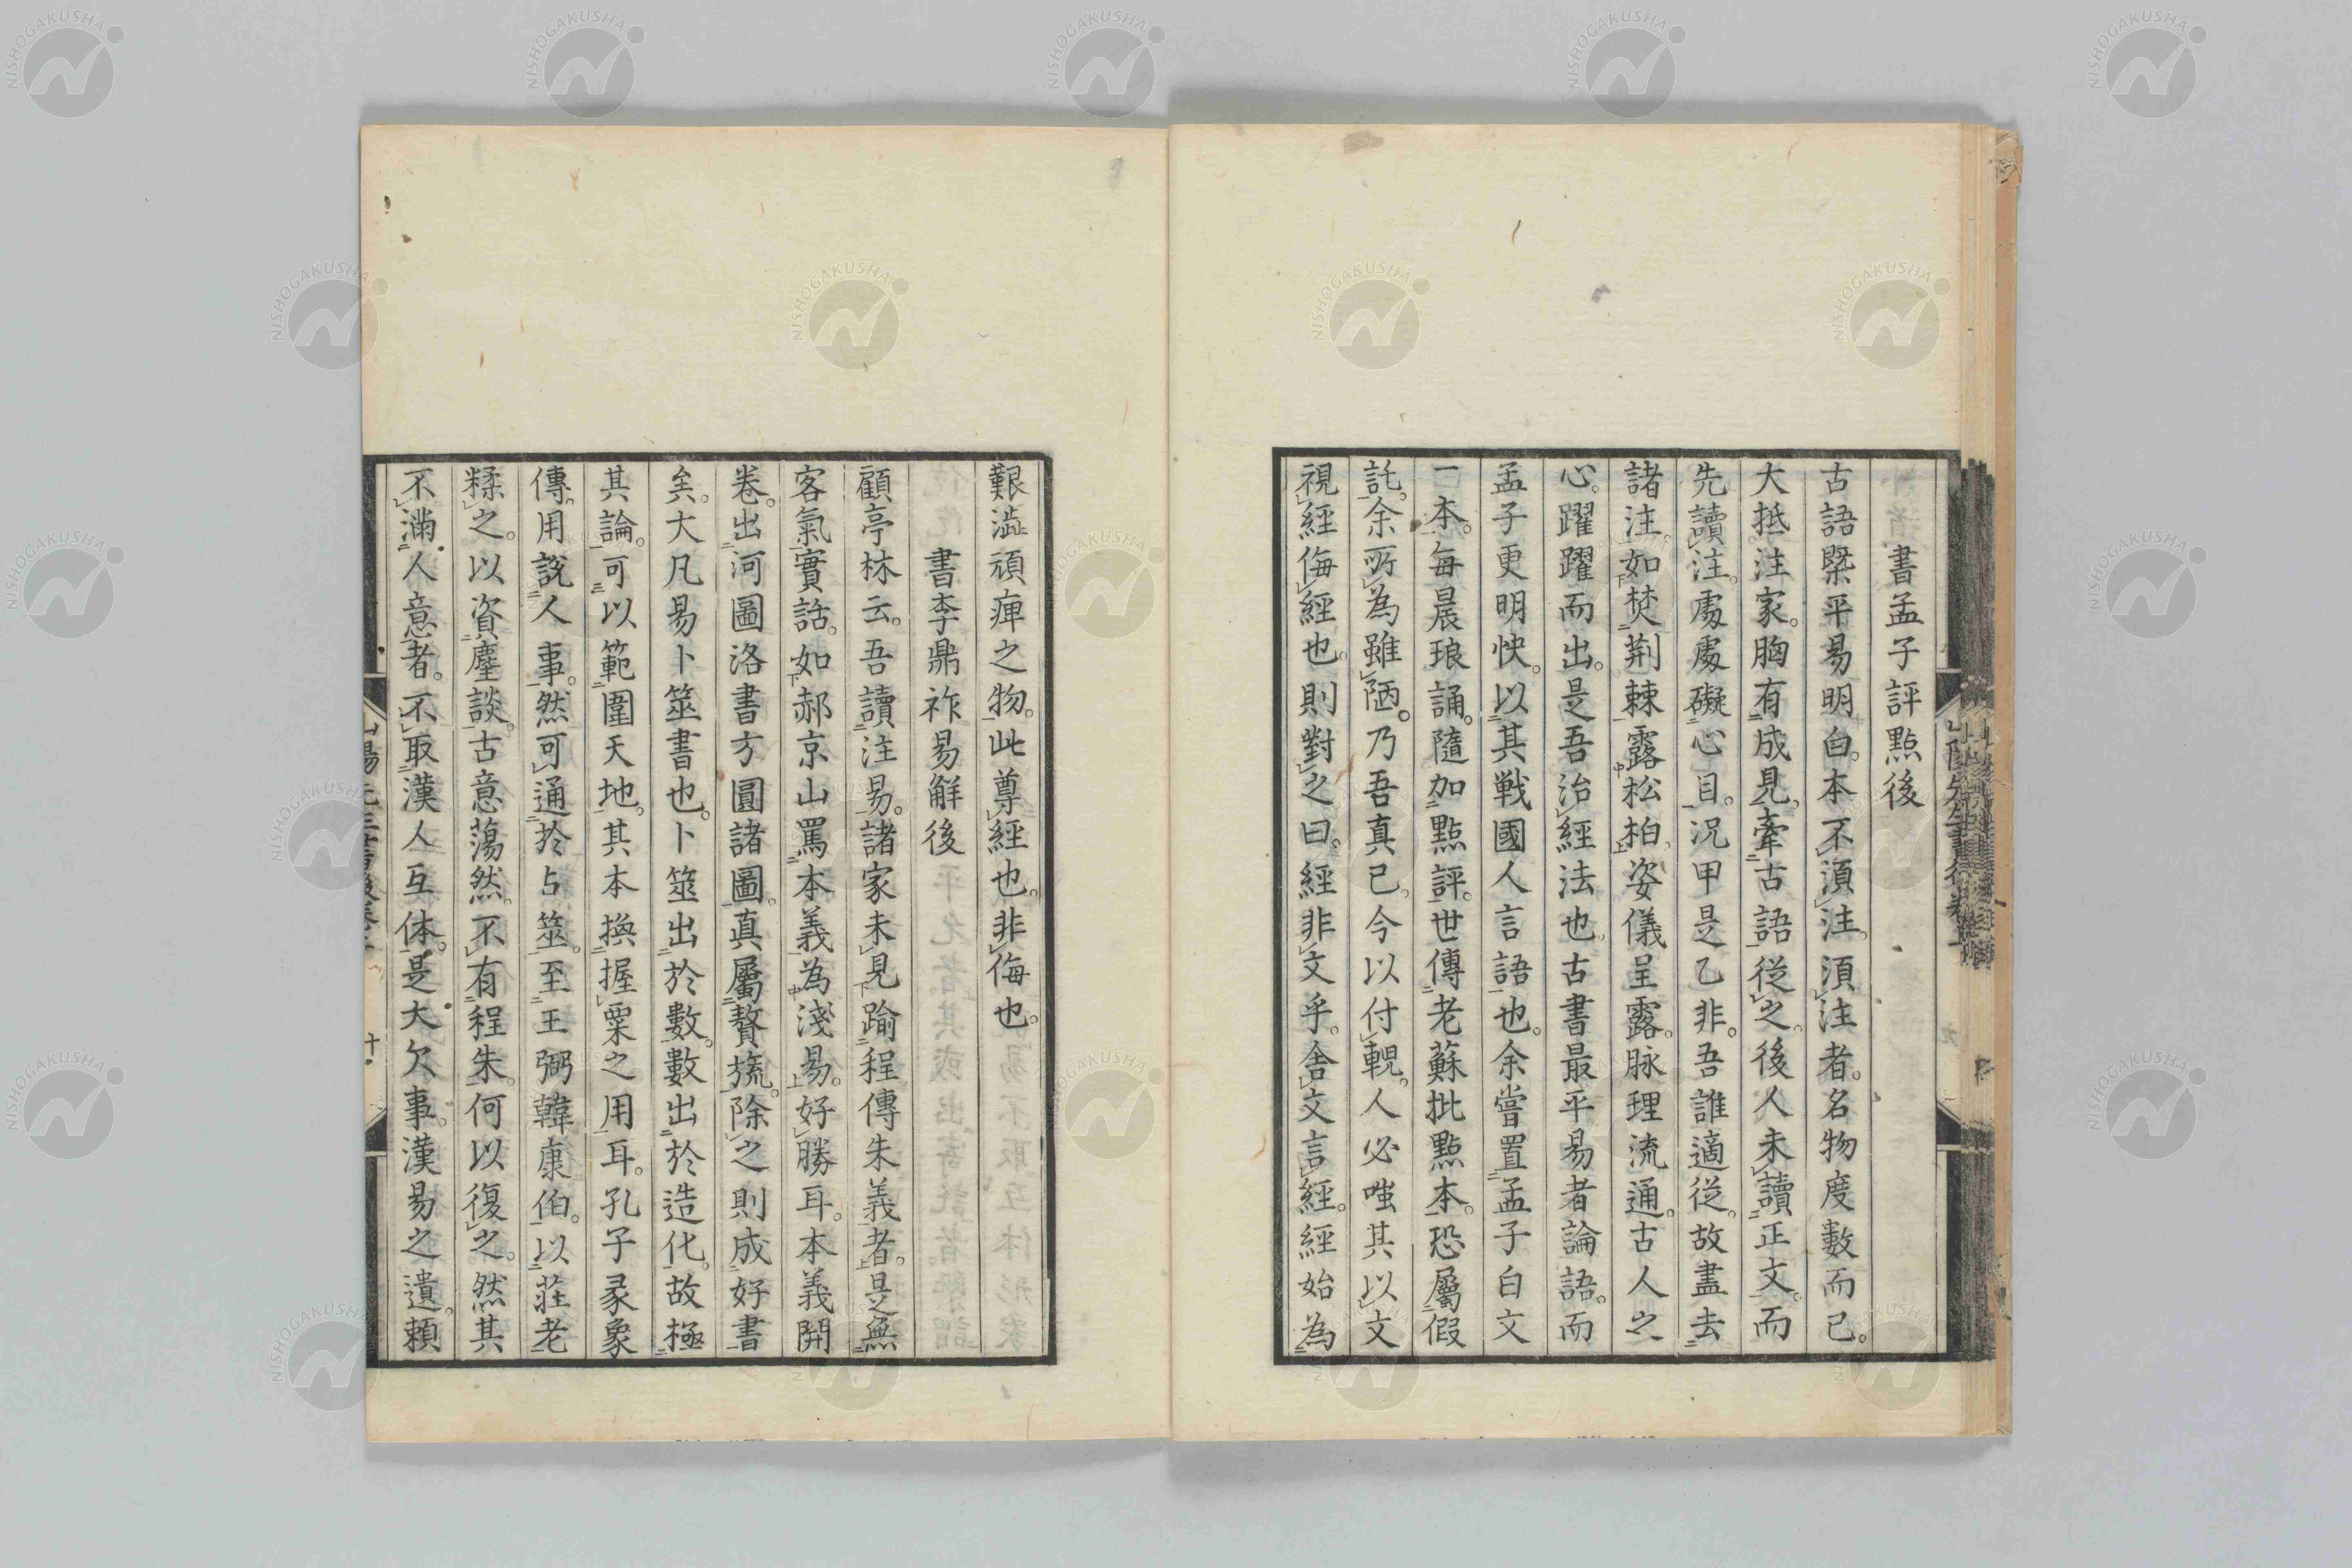 書孟子評點後
古語槩平易明白。本不須注。須注者。名物度數而已。
大抵注家。胸有成見。牽古語從之。後人未讀正文。而
先讀注。處處礙心目。況甲是乙非。吾誰適從。故盡去
諸注。如焚荊棘露松柏。姿儀呈露。脉理流通。古人之
心。躍躍而出。是吾治經法也。古書最平易者論語。而
孟子更明快。以其戰國人言語也。余嘗置孟子白文
一本。每晨琅誦。隨加點評。世傳老蘇批點本。恐屬假
託。余所為雖陋。乃吾真已。今以付輗。人必嗤其以文
視經侮經也。則對之曰。經非文乎。舍文言經。經始為
艱澁頑痺之物。此尊經也。非侮也。
書李鼎祚易解後
顧亭林云。吾讀注易。諸家未見踰程傳朱義者。是無
客氣實話。如郝京山罵本義為淺易。好勝耳。本義開
卷。出河圖洛書方圓諸圖。真屬贅旒。除之則成好書
矣。大凡易卜筮書也。卜筮出於數。數出於造化。故極
其論。可以範圍天地。其本換握粟之用耳。孔子彖象
傳。用說人事。然可通於占筮。至王弼韓康伯。以莊老
糅之。以資麈談。古意蕩然。不有程朱。何以復之。然其
不滿人意者。不取漢人互体。是大欠事。漢易之遺。賴
NISHOGAKUSHA